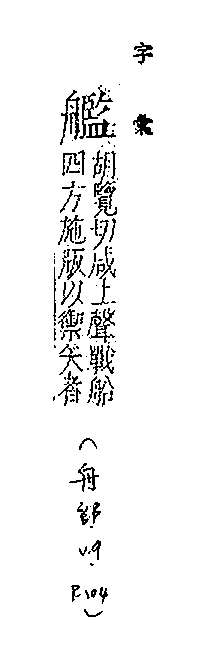 字彙
艦
胡覽切咸上聲戰船
四方施版以禦矢者
(舟部 v.9. P.104)